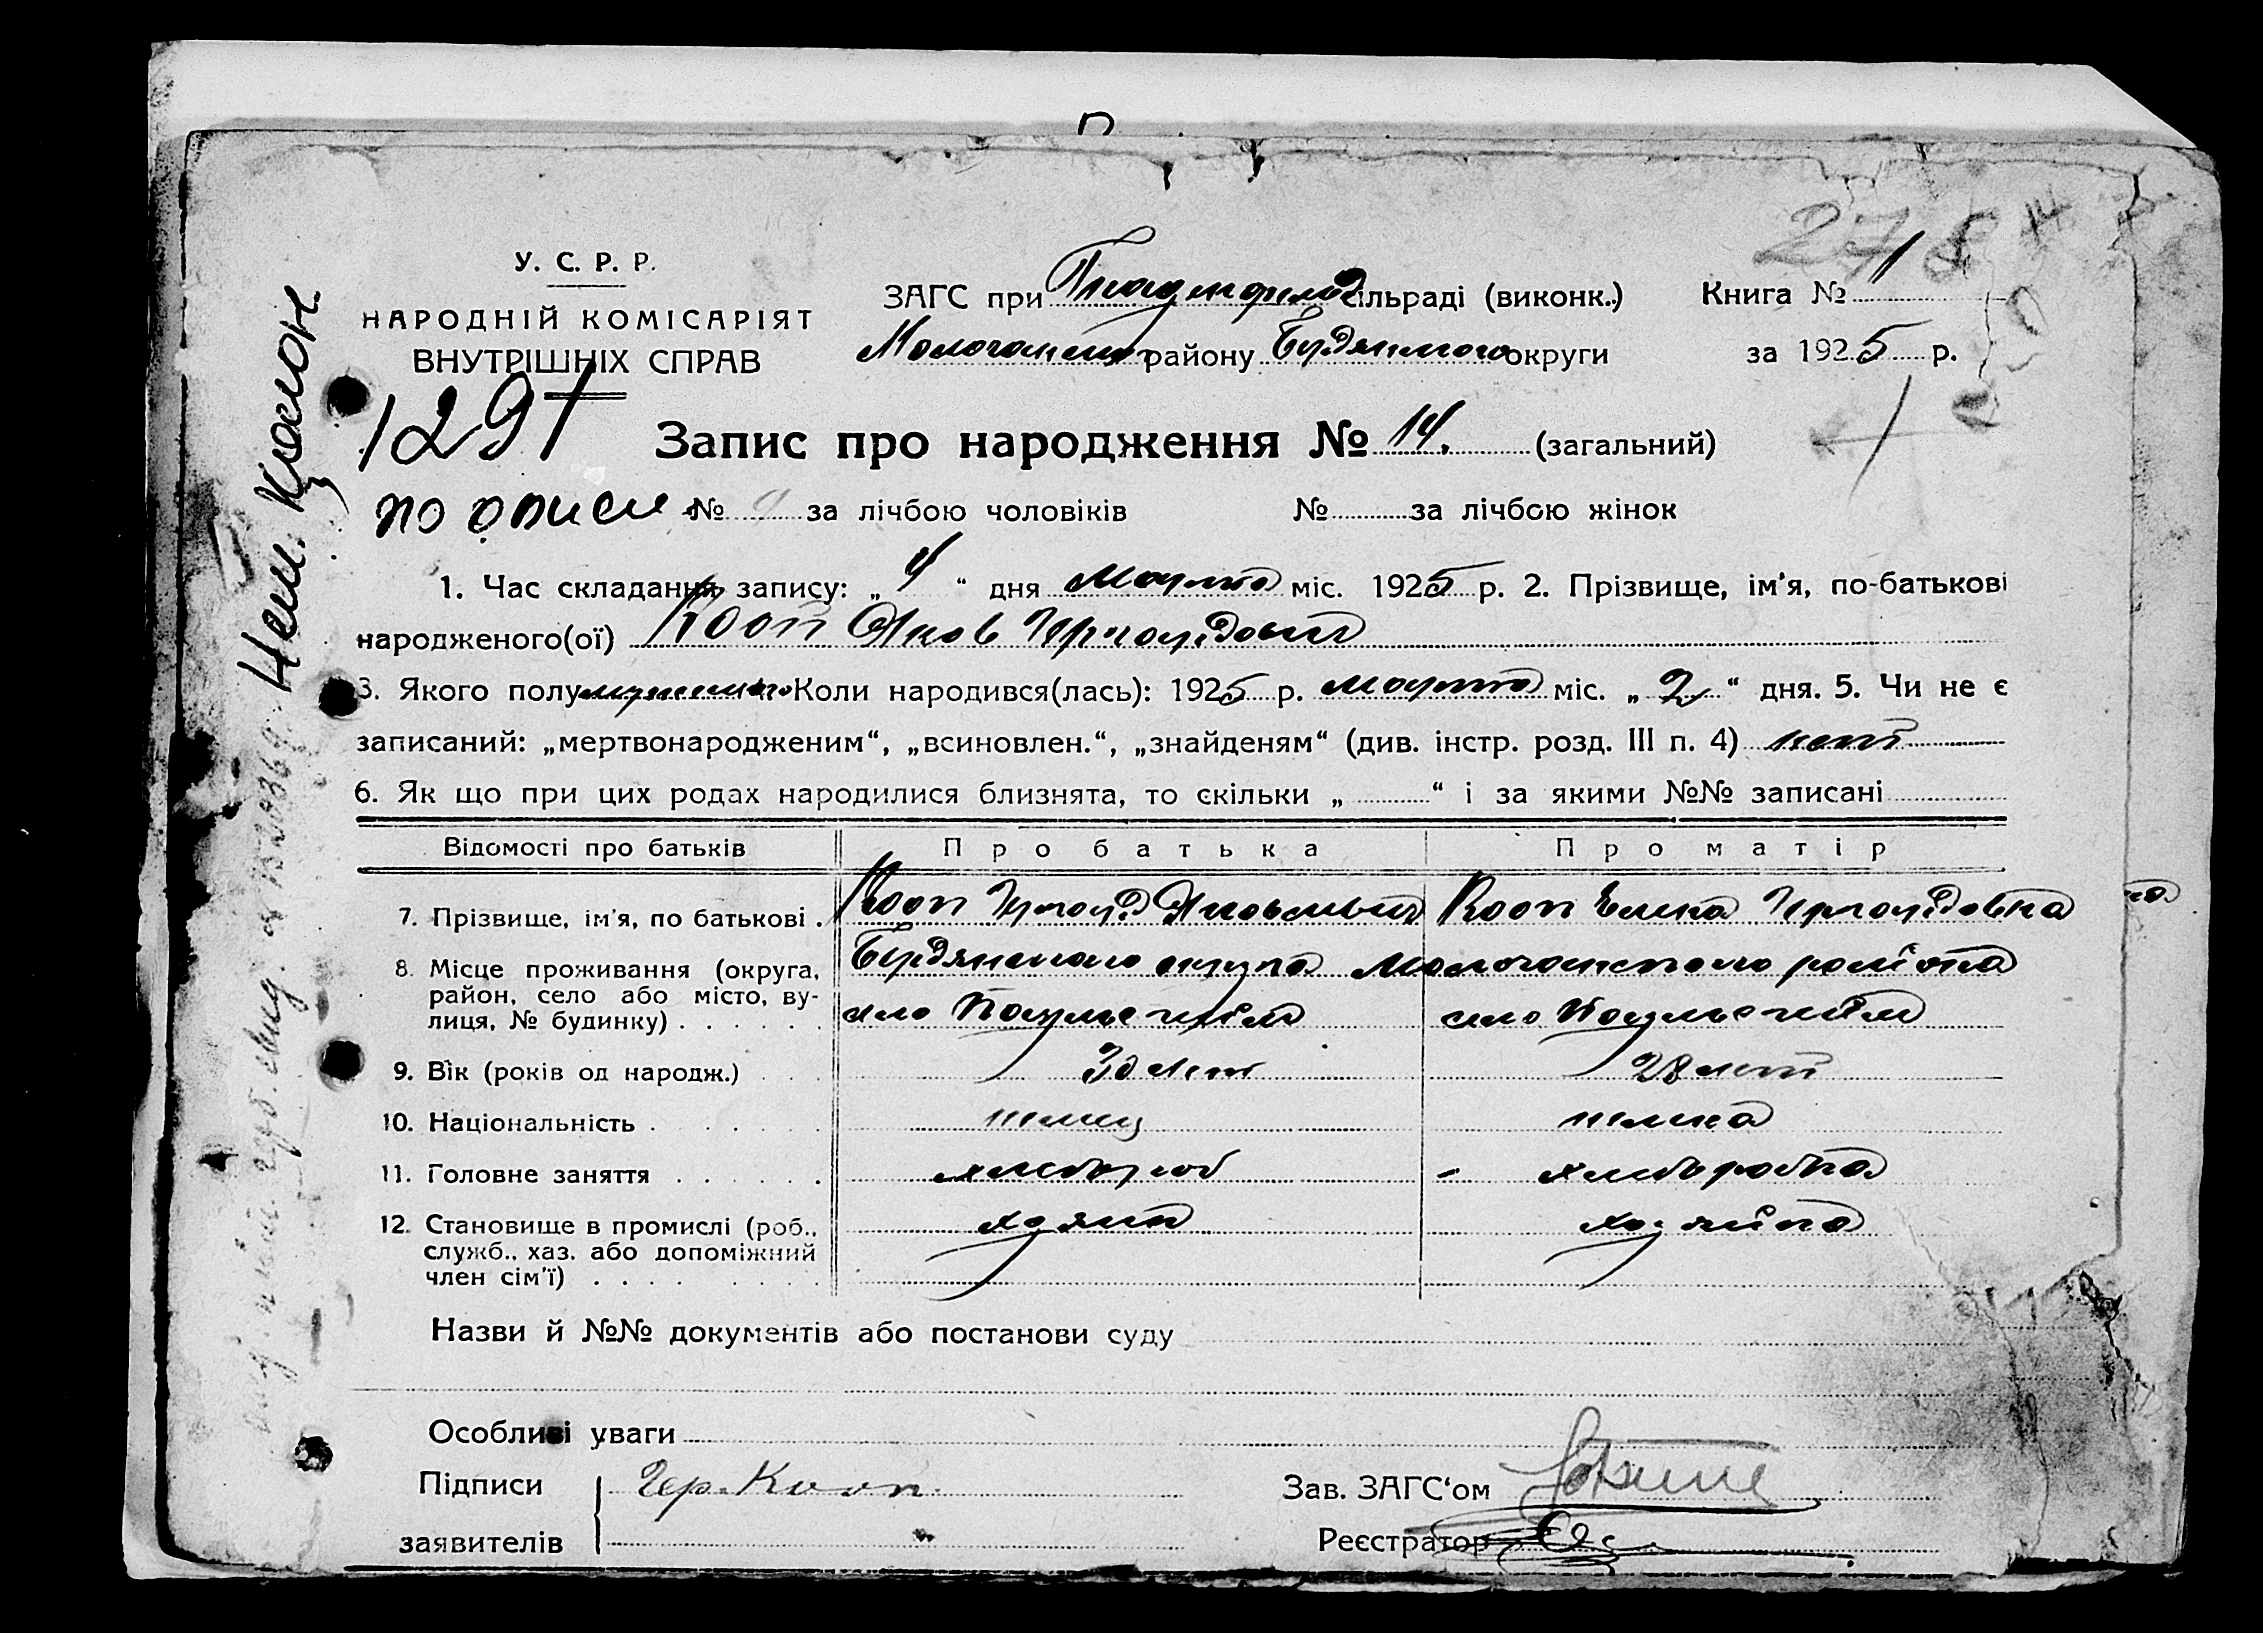 У. С. Р. Р.
НАРОДНІЙ КОМІСАРІЯТ
ВНУТРІШНІХ СПРАВ
ЗАГС при Гнаденфельд сільраді (виконк.)
Молочанского району Бердянского округи
Книга № 1
за 1925 р.
278
129
Запис про народження № 14. (загальний)
по описи № за лічбою чоловіків № за лічбою жінок
Нем. Колон.
1. Час складання запису: „ 4 “ дня Марта міс. 1925 р. 2. Прізвище, ім'я, по-батькові
народженого(ої) Кооп Яков Гергардович
3. Якого полу мужского Коли народився(лась): 1925 р. марта міс. „ 2 “ дня. 5. Чи не є
записаний: „мертвонародженим“, „всиновлен.“, „знайденям“ (див. інстр. розд. III п. 4) нет
6. Як що при цих родах народилися близнята, то скільки „ “ і за якими №№ записані
Відомості про батьків Про батька Про матір
7. Прізвище, ім'я, по батькові . Кооп Гергард Яковлевич Кооп Елена Гергардовна
8. Місце проживання (округа, район, село або місто, вулиця, № будинку) Бердянского округа Молочанского района
село Паульсгейм село Паульсгейм
9. Вік (років од народж.) 30 лет 28 лет
10. Національність немец немка
11. Головне заняття хлебороб хлеборобка
12. Становище в промислі (роб., служб., хаз. або допоміжний член сім'ї) хозяин хозяйка
Назви й №№ документів або постанови суду
Особливі уваги
Підписи Гер. Кооп. Зав. ЗАГС'ом
заявителів Реєстратор